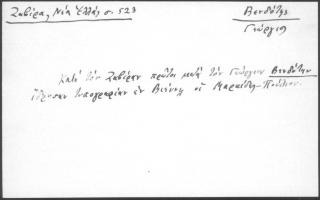 Ζαβίρα, Νέα Ἑλλάς σ. 523
Βενδότης
Γεώργιος
Κατά τόν Ζαβίραν πρῶτοι μετά τόν Γεώργιον Βενδότην
ἵδρυσαν τυπογραφίαν ἐν Βιέννῃ οἱ Μαρκίδες-Πούλιου.